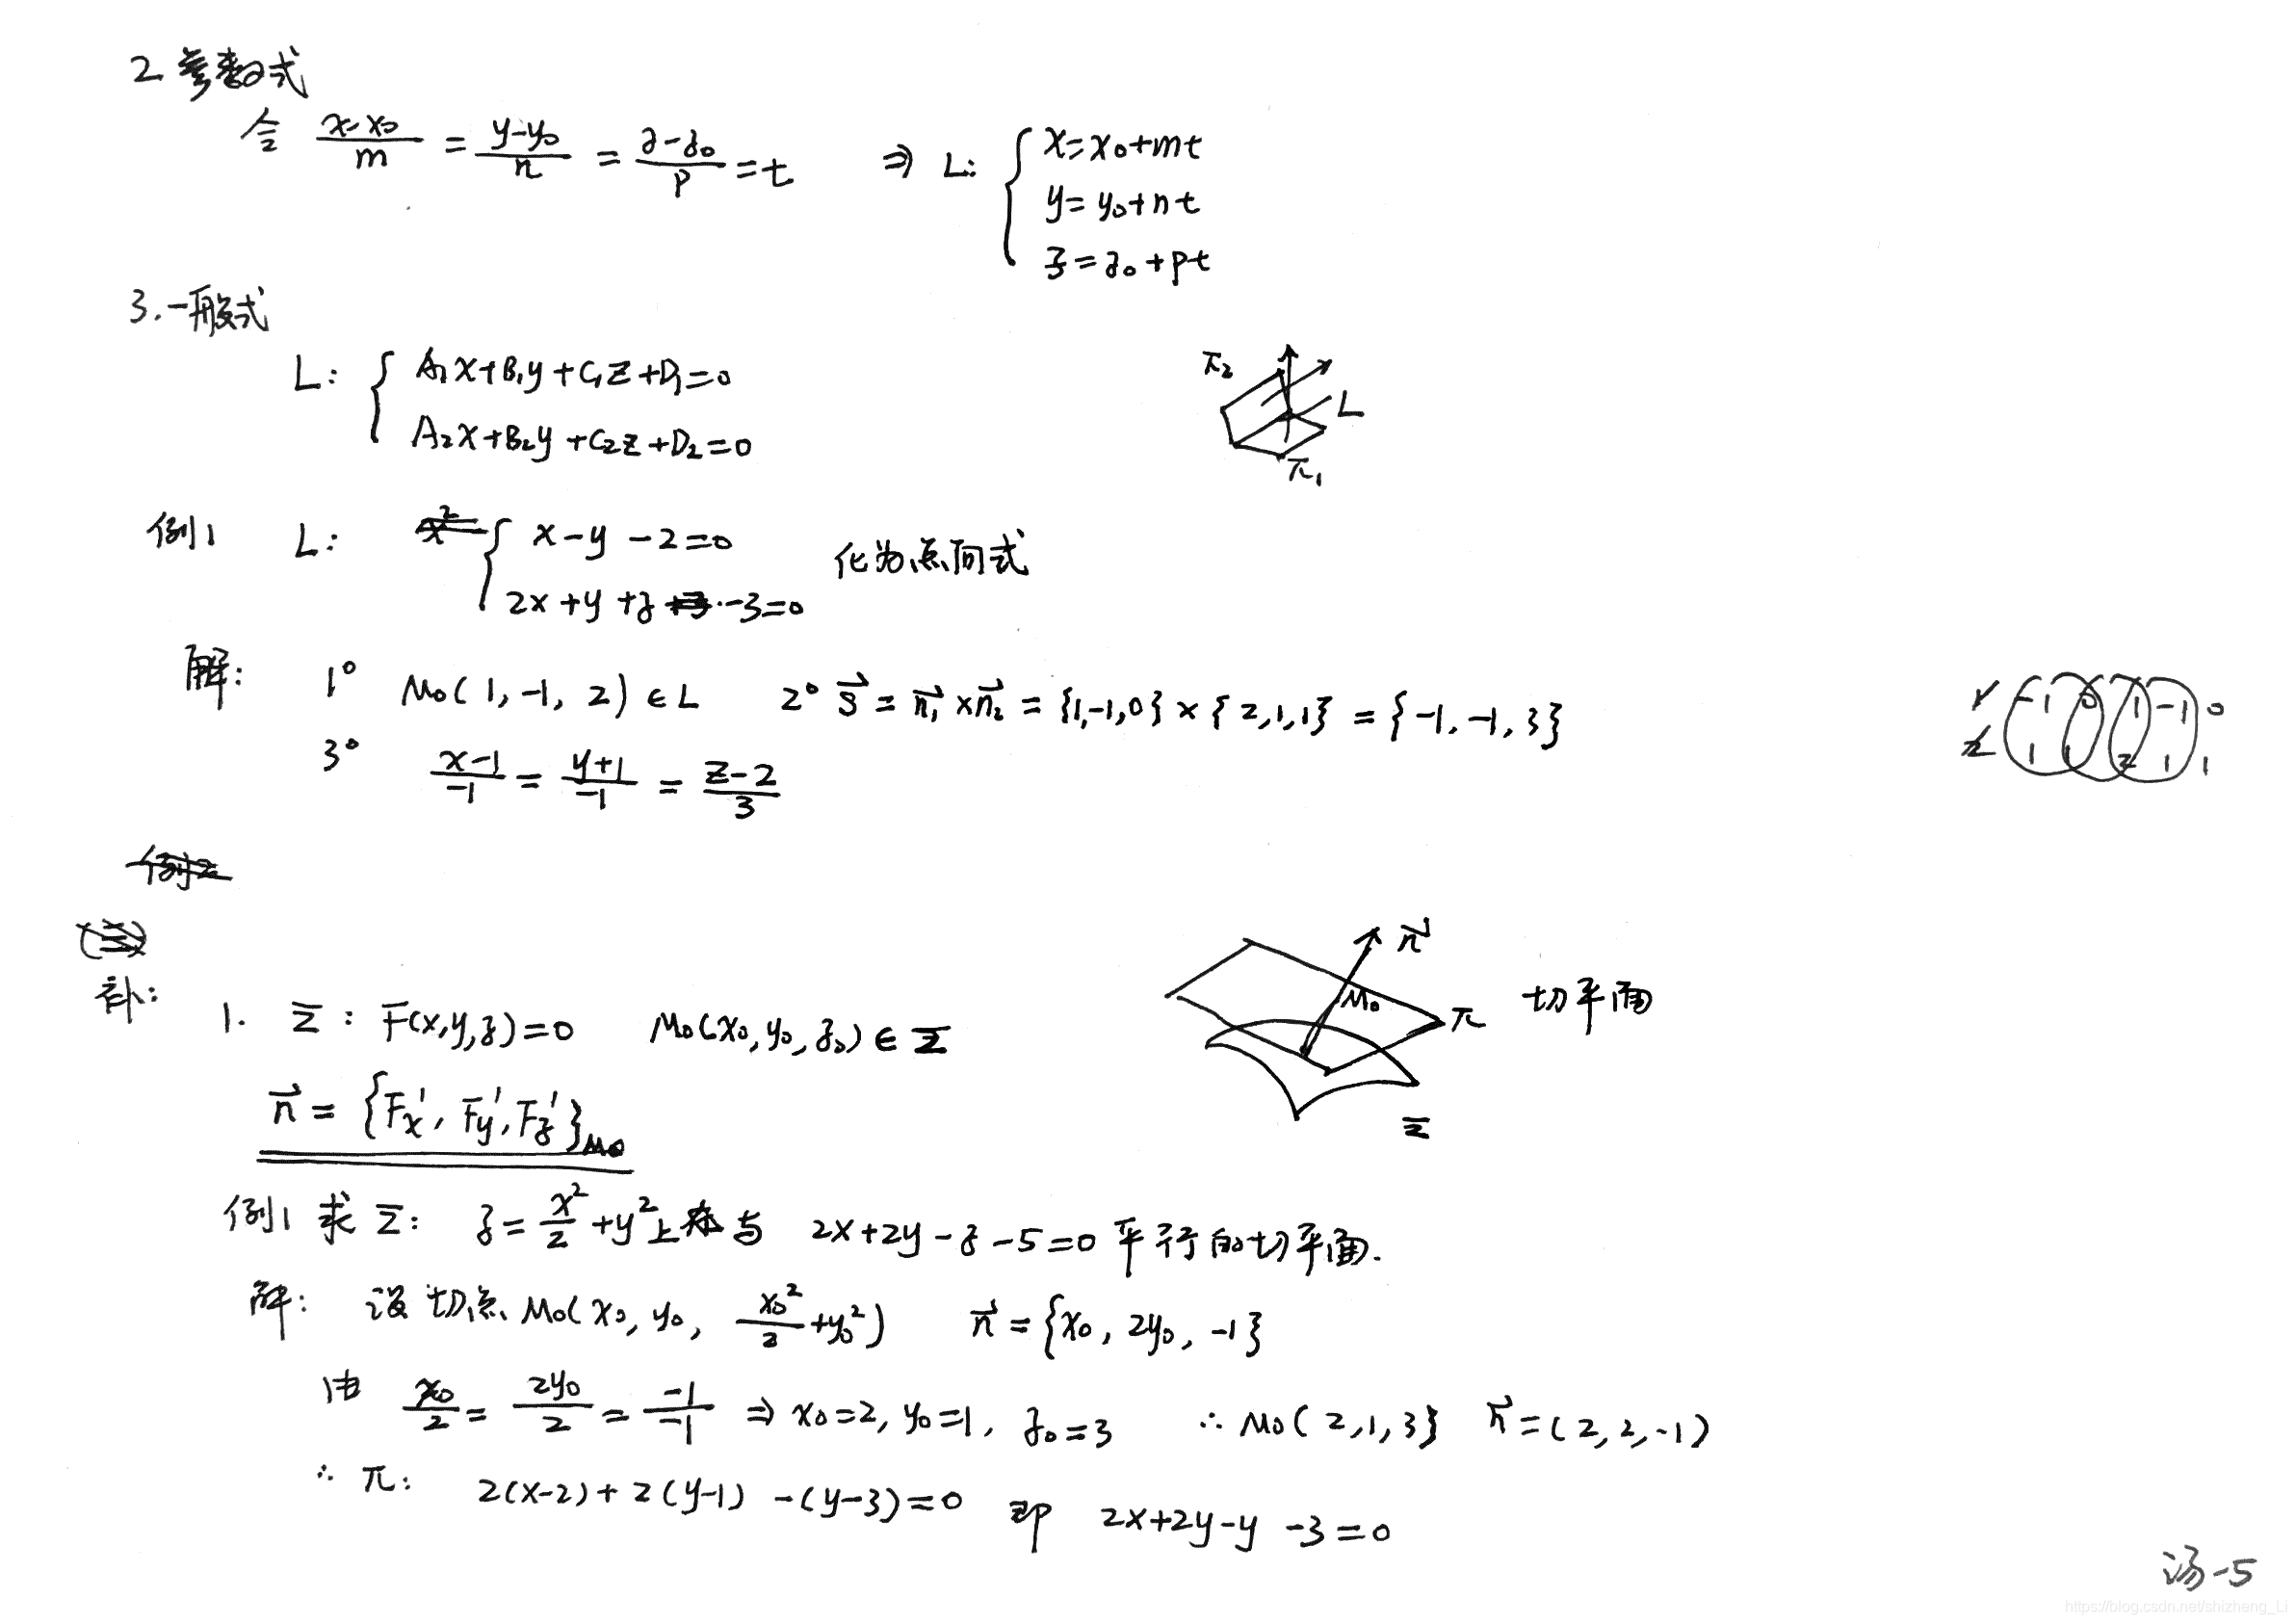 2 参数式
令 (x-x₀)/m = (y-y₀)/n = (z-z₀)/p = t ⇒ L: { x=x₀+mt
y=y₀+nt
z=z₀+pt
3.一般式
L: { A₁x+B₁y+C₁z+D₁=0
A₂x+B₂y+C₂z+D₂=0
π₂
L
π₁
例1 L: { x-y-2=0
2x+y+z-3=0 化为点向式
解: 1° M₀(1,-1,2)∈L 2° s⃗=n⃗₁×n⃗₂={1,-1,0}×{2,1,1}={-1,-1,3}
1 -1 0 1 -1 0
2 1 1 2 1 1
3° (x-1)/-1 = (y+1)/-1 = (z-2)/3
例2
(三)
补:
1. Σ: F(x,y,z)=0 M₀(x₀,y₀,z₀)∈Σ
n⃗
M₀
π 切平面
Σ
n⃗={F'x, F'y, F'z}M₀
例1 求Σ: z=x²/2+y²上与 2x+2y-z-5=0 平行的切平面.
解: 设切点M₀(x₀,y₀, x₀²/2+y₀²) n⃗={x₀, 2y₀, -1}
由 x₀/2 = 2y₀/2 = -1/-1 ⇒ x₀=2, y₀=1, z₀=3 ∴ M₀(2,1,3} n⃗=(2,2,-1)
∴ π: 2(x-2)+2(y-1)-(y-3)=0 即 2x+2y-y-3=0
汤-5
https://blog.csdn.net/shizheng_Li